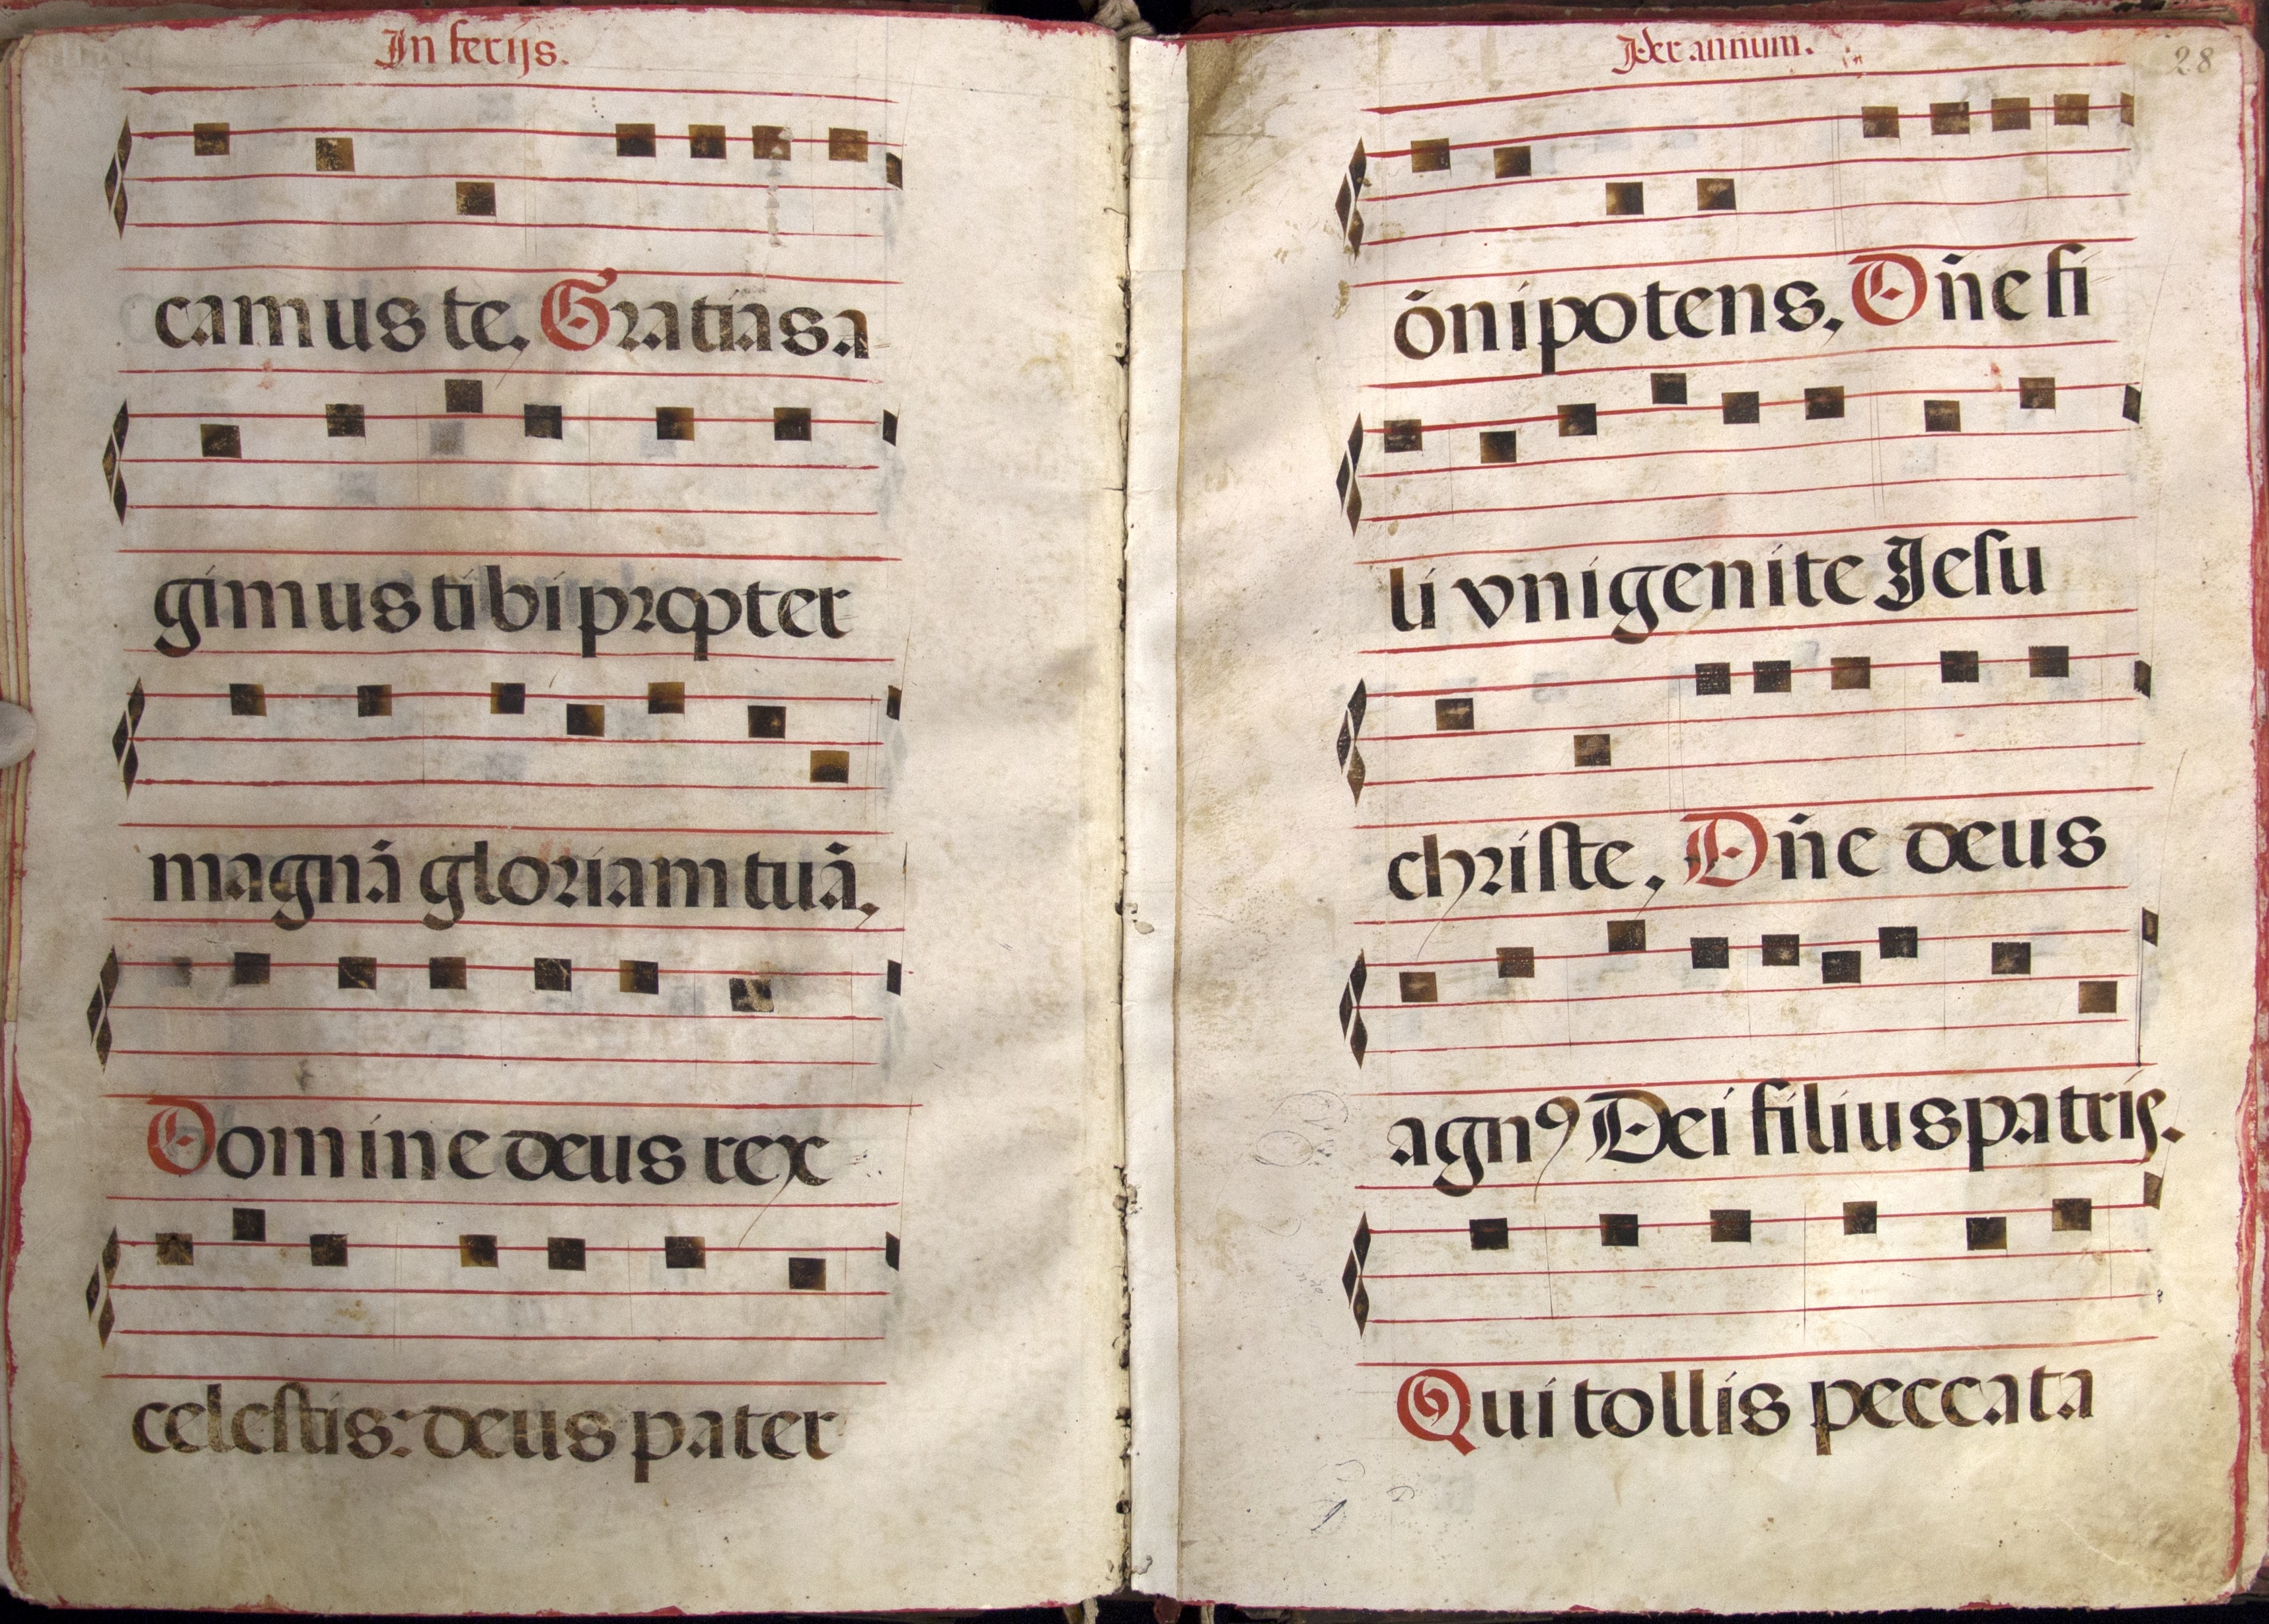 In ferijs.
camus te. Gratias a
gimus tibi propter
magnā gloriam tuā.
Domine deus rex
celestis: deus pater
Per annum.
28
ōnipotens. Dn̄e fi
li vnigenite Jesu
christe. Dn̄e deus
agnꝰ Dei filius patris.
Qui tollis peccata